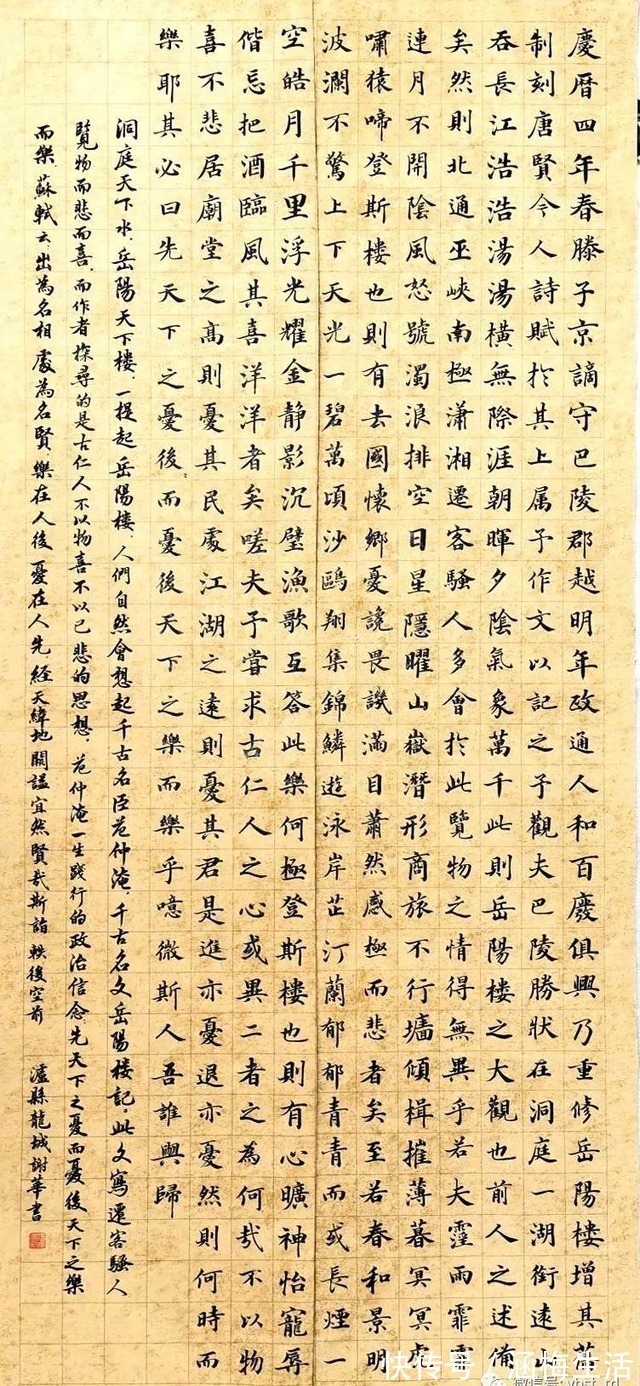 慶曆四年春滕子京謫守巴陵郡越明年政通人和百廢俱興乃重修岳陽楼增其舊
制刻唐賢今人詩賦於其上属予作文以記之予觀夫巴陵勝狀在洞庭一湖銜遠山
吞長江浩浩湯湯橫無際涯朝暉夕陰氣象萬千此則岳陽楼之大觀也前人之述備
矣然則北通巫峽南極瀟湘遷客騷人多會於此覽物之情得無異乎若夫霪雨霏霏
連月不開陰風怒號濁浪排空日星隱曜山嶽潛形商旅不行墻傾楫摧薄暮冥冥虎
嘯猿啼登斯楼也則有去國懷鄉憂讒畏譏滿目蕭然感極而悲者矣至若春和景明
波瀾不驚上下天光一碧萬頃沙鷗翔集錦鱗遊泳岸芷汀蘭郁郁青青而或長煙一
空皓月千里浮光耀金静影沉璧漁歌互答此樂何極登斯楼也則有心曠神怡寵辱
偕忘把酒臨風其喜洋洋者矣嗟夫予嘗求古仁人之心或異二者之為何哉不以物
喜不悲居廟堂之高則憂其民處江湖之遠則憂其君是進亦憂退亦憂然則何時而
樂耶其必曰先天下之憂後而憂後天下之樂而樂乎噫微斯人吾誰與歸
洞庭天下水，岳陽天下楼、一提起岳陽楼、人們自然會想起千古名臣范仲淹，千古名文岳陽楼記，此文寫遷客騷人
覽物而悲而喜，而作者探尋的是古仁人不以物喜不以己悲的思想，范仲淹一生踐行的政治信念先天下之憂而憂後天下之樂
而樂，蘇軾云出為名相處為名賢樂在人後憂在人先經天緯地闕謚宜然賢哉斯詣軼後空前 瀘縣龍城謝華書
快传号/涵梅生活